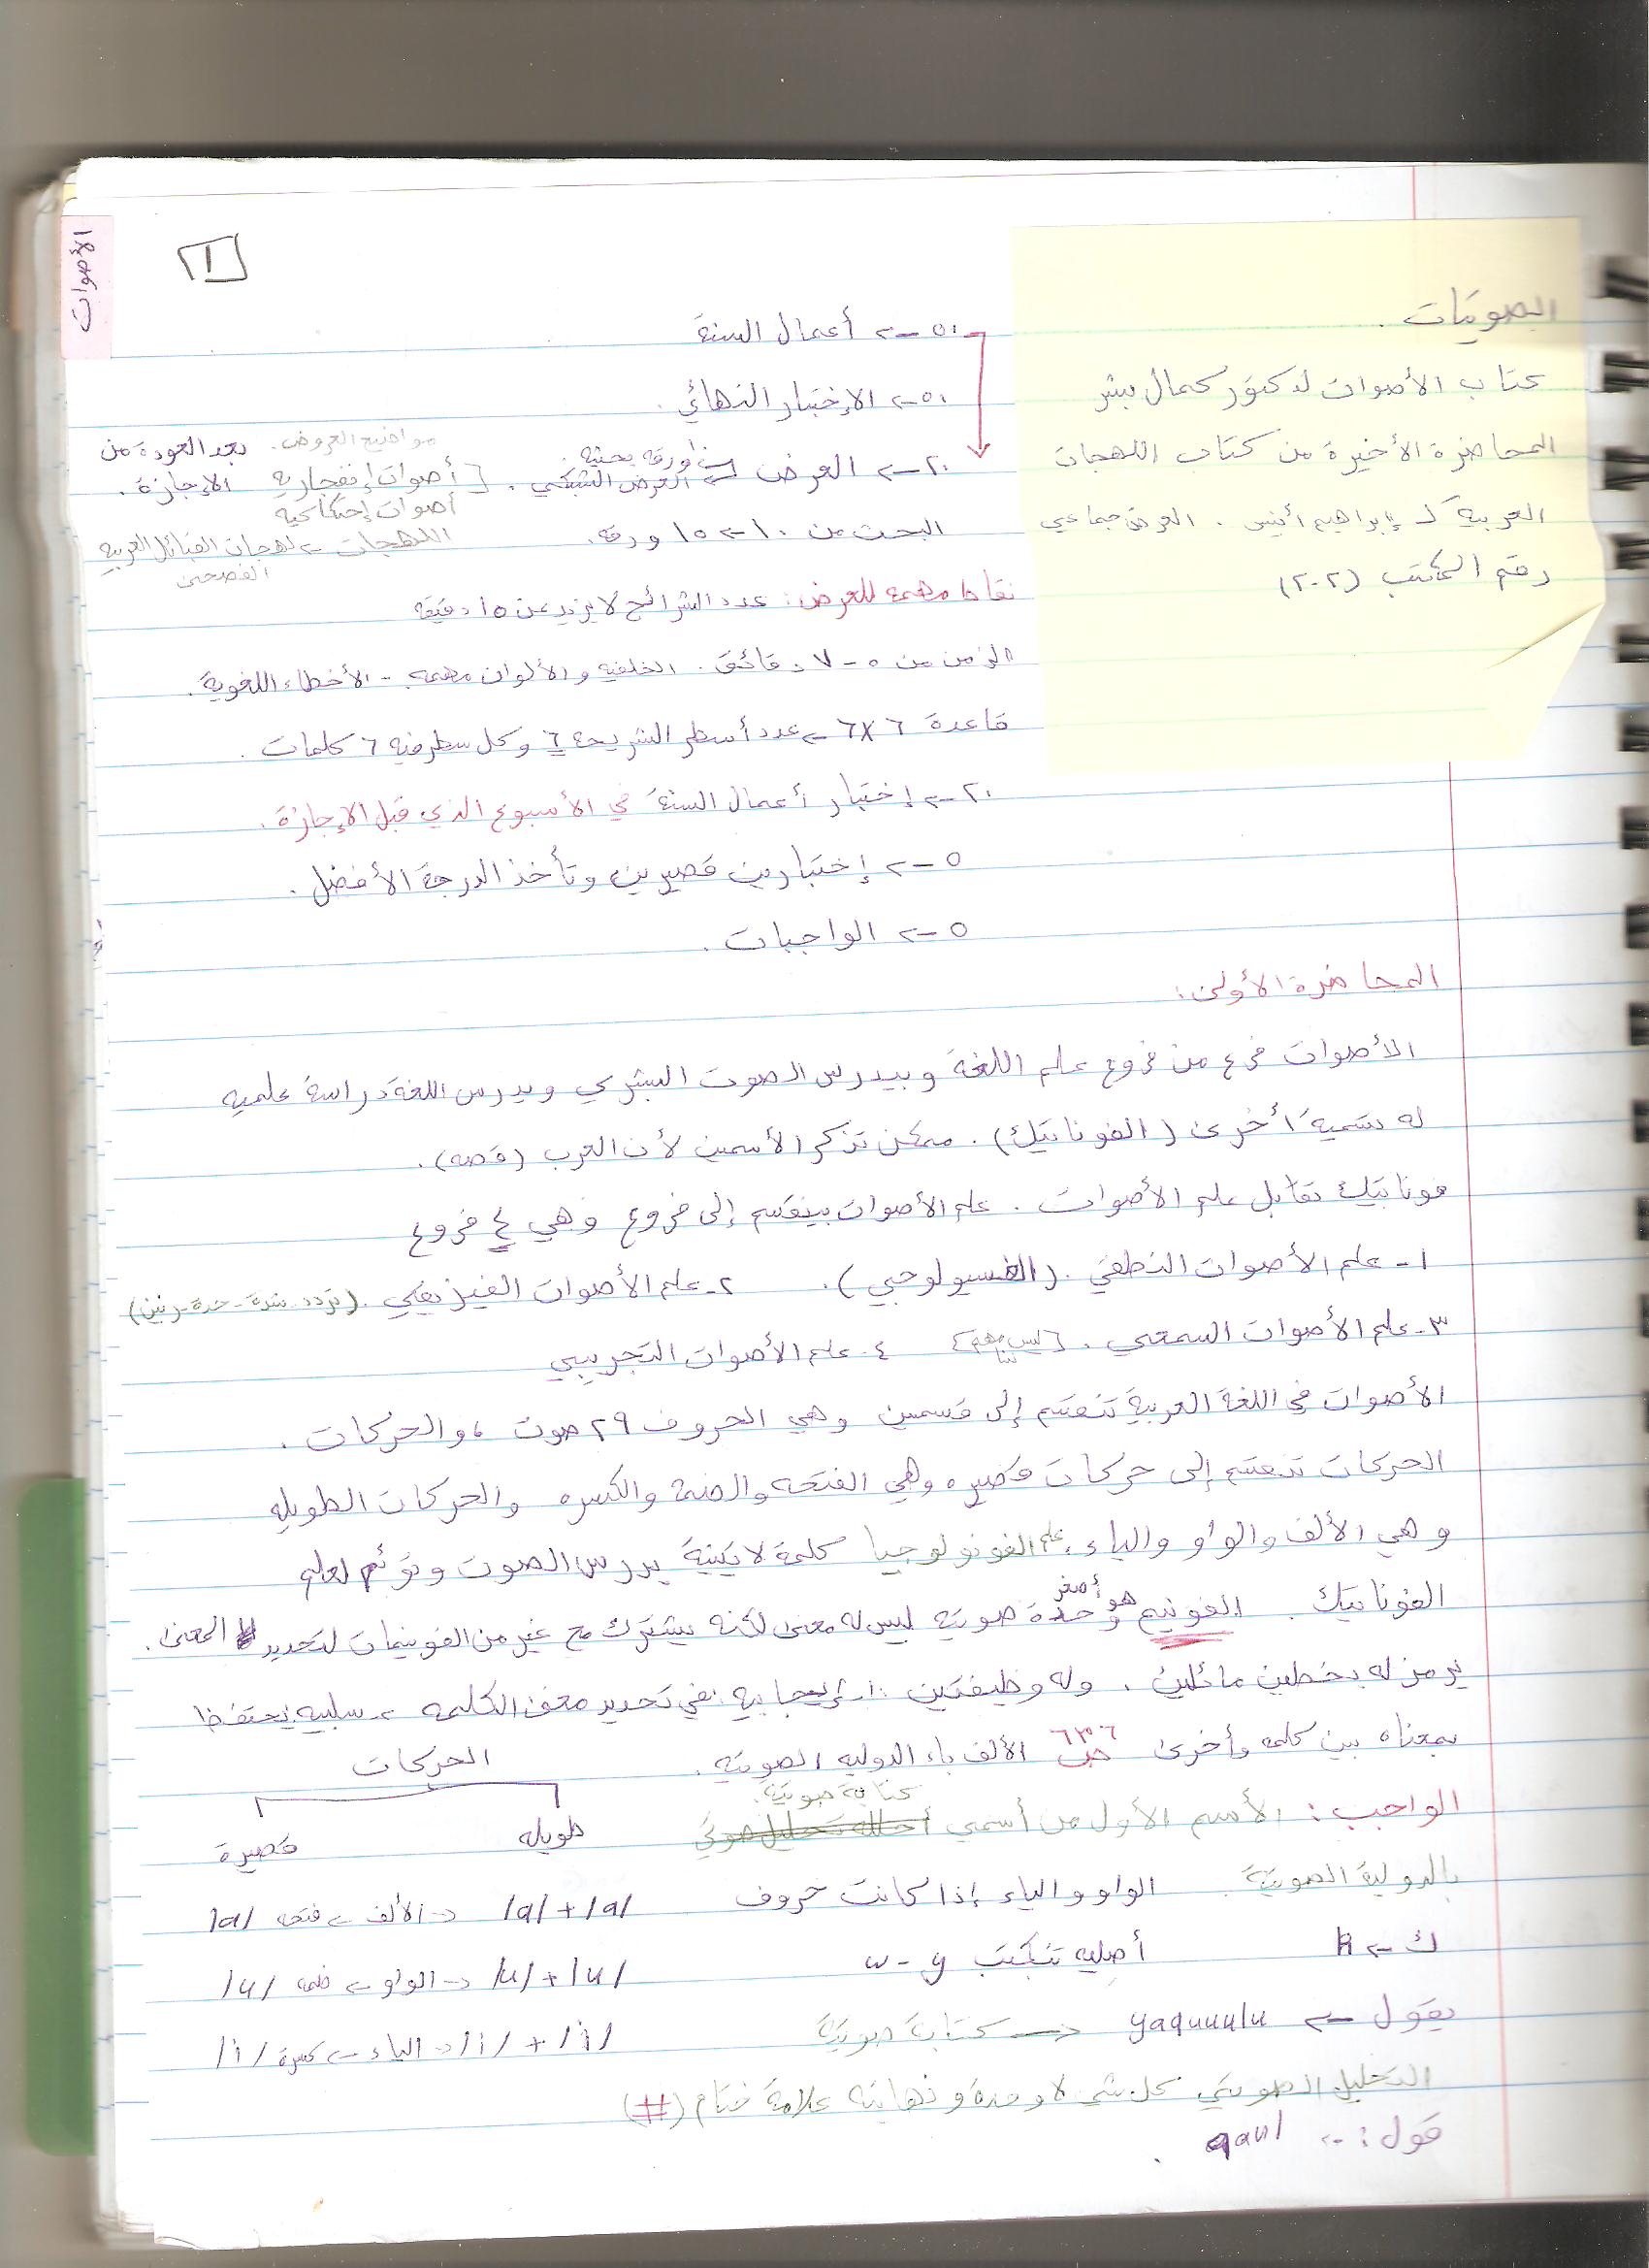 الأصوات
١
الصوتيات.
كتاب الأصوات لدكتور كمال بشر
المحاضرة الأخيرة من كتاب اللهجات
العربية لـ إبراهيم أنيس. العرض جماعي
رقم المكتب (٢٠٢)
٥٠ -> أعمال السنة
٥٠ -> الإختبار النهائي.
٢٠ -> العرض -> أو رقه بحثيه.
العرض الشبكي.
مواضيع العروض. بعد العودة من
[أصوات إنفجاريه الإجازة.
أصوات إحتكاكيه
اللهجات -> لهجات القبائل العربيه
الفصحى
البحث من ١٠ -> ١٥ ورقه.
نقاط مهمه للعرض: عدد الشرائح لا يزيد عن ١٥ دقيقه
الزمن من ٥ - ٧ دقائق. الخلفيه والألوان مهمه - الأخطاء اللغوية.
قاعدة ٦x٦ -> عدد أسطر الشريحه ٦ وكل سطر فيه ٦ كلمات.
٢٠ -> إختبار أعمال السنة في الأسبوع الذي قبل الإجازة.
٥ -> إختبارين قصيرين وتأخذ الدرجة الأفضل.
٥ -> الواجبات.
المحاضرة الأولى:
الأصوات فرع من فروع علم اللغة وبيدرس الصوت البشري ويدرس اللغة دراسة علميه
له تسمية أخرى (الفوناتيك). ممكن تذكر الأسمين لأن العرب (قصه).
فوناتيك تقابل علم الأصوات. علم الأصوات بينقسم إلى فروع وهي ٤ فروع
١- علم الأصوات النطقي. (الفسيولوجي). ٢- علم الأصوات الفيزيقي. (تردد - شدة - حدة - رنين)
٣- علم الأصوات السمعي. [ليس مهم] ٤- علم الأصوات التجريبي
الأصوات في اللغة العربية تنقسم إلى قسمين وهي الحروف ٢٩ صوت، والحركات.
الحركات تنقسم إلى حركات قصيره وهي الفتحه والضمة والكسره والحركات الطويله
وهي الألف والواو والياء. علم الفونولوجيا كلمة لاتينية يدرس الصوت وتوئم لعلم
الفوناتيك. الفونيم هو أصغر وحدة صوتيه ليس له معنى لكنه يشترك مع غير من الفونيمات لتحديد المعنى.
يرمز له بخطين مائلين. وله وظيفتين: ١- إيجابيه: في تحديد معنى الكلمه ٢- سلبيه: يحتفظ
بمعناه بين كلمه وأخرى ٦٣٦ الألف باء الدوليه الصوتيه.
الواجب: الأسم الأول من أسمي كتابة صوتية.
بالدولية الصوتية
الحركات
طويله قصيرة
/a/+/a/ <- الألف -> فتحه /a/
/u/+/u/ <- الواو -> ضمه /u/
/i/+/i/ <- الياء -> كسرة /i/
الواو والياء إذا كانت حروف
أصليه تنكتب w - y
ك -> k
يقول -> yaquuulu <- كتابة صوتية
التحليل الصوتي كل شي لاوحدة ونهايته علامة ختام (#)
قول: -> qaul.